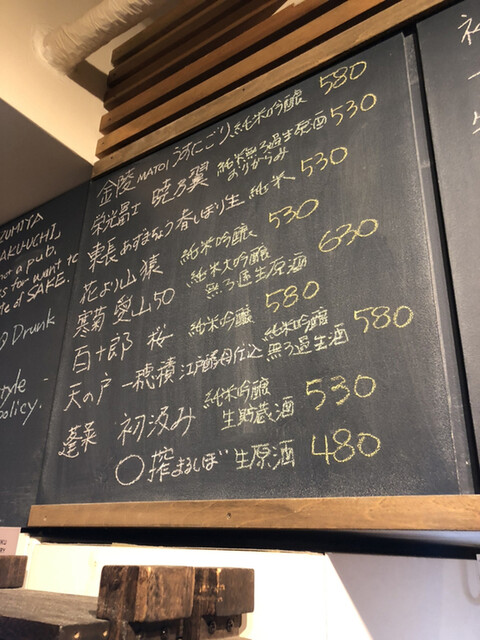 金陵 MATOI うすにごり 純米吟醸 580
栄光冨士 暁乃翼 純米無ろ過生原酒 おりがらみ 530
東長 あすまちょう 春しぼり生 純米 530
花より山猿 純米吟醸 530
寒菊 愛山50 純米大吟醸 無ろ過生原酒 630
百十郎 桜 純米吟醸 580
天の戸 一穂積 江戸酛仕込 純米吟醸 無ろ過生酒 580
蓬莱 初汲み 純米吟醸 生貯蔵酒 530
○搾 まるしぼ 生原酒 480
UMITA
AKUUCHI,
not a pub.
for want to
of SAKE.
Drunk
tyle
policy.